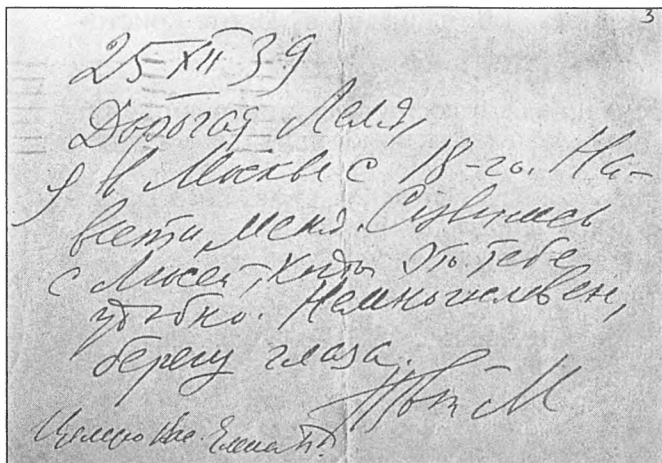 3
25 XII 39
Дорогая Леля,
я в Москве с 18-го. На-
вести меня. Сговорись
с Люсей, когда это тебе
удобно. Немногословен,
берегу глаза.
Твой М
Целую Вас. Елена